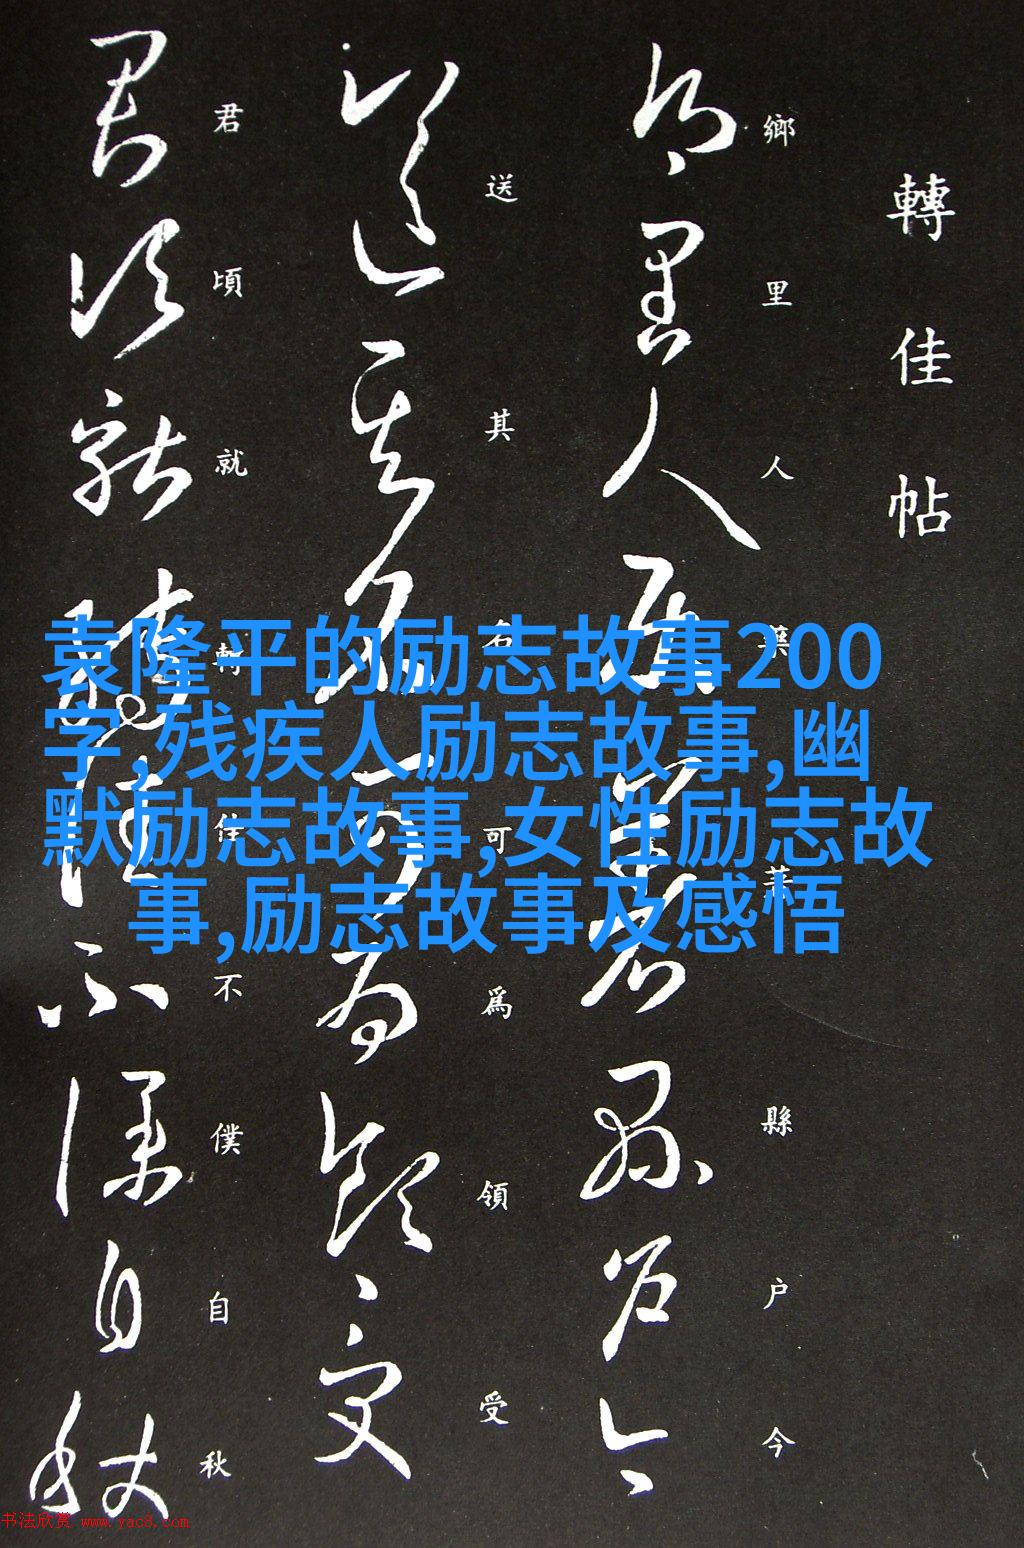 轉佳帖
鄉里人藥
縣户今
送其名可為領受
君頃就轉佳不僕自秋
袁隆平的励志故事200
字,残疾人励志故事,幽
默励志故事,女性励志故
事,励志故事及感悟
书法欣赏 www.yac8.com